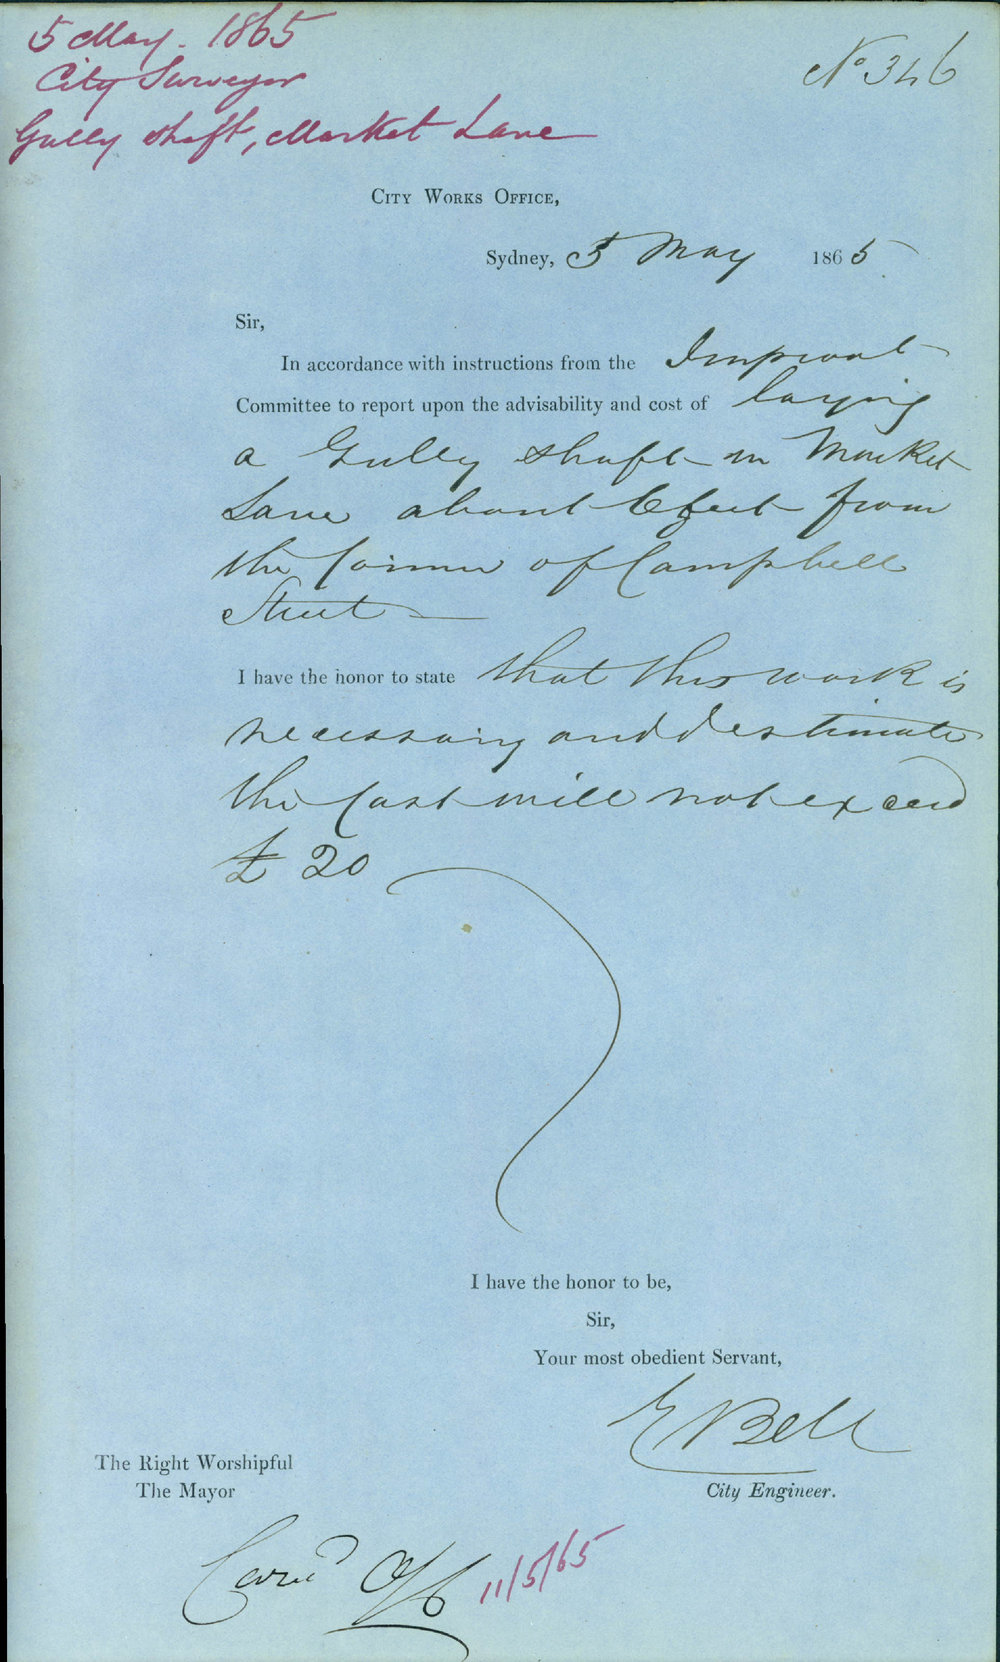 5 May. 1865
City Surveyor
Gully shaft, Market Lane
No 346
City Works Office,
Sydney, 5 May 1865
Sir,
In accordance with instructions from the Improvmt
Committee to report upon the advisability and cost of laying
a Gully shaft in Market
Lane about feet from
the Corner of Campbell
Street —
I have the honor to state that this work is
necessary and I estimate
the cost will not exceed
£ 20
I have the honor to be,
Sir,
Your most obedient Servant,
E Bell
The Right Worshipful
The Mayor
City Engineer.
11/5/65